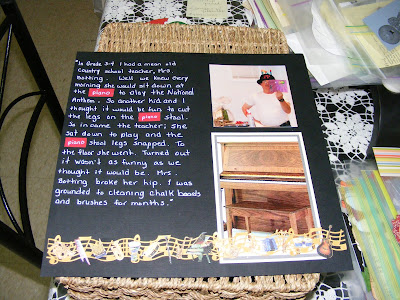 "In Grade 3-4 I had a mean old
country school teacher, Mrs.
Botting. Well we knew every
morning she would sit down at
the piano to play the National
Anthem. So another kid and I
thought it would be fun to cut
the legs on the piano stool.
So in came the teacher; she
sat down to play and the
piano stool legs snapped. To
the floor she went. Turned out
it wasn't as funny as we
thought it would be. Mrs.
Botting broke her hip. I was
grounded to cleaning chalk boards
and brushes for months."